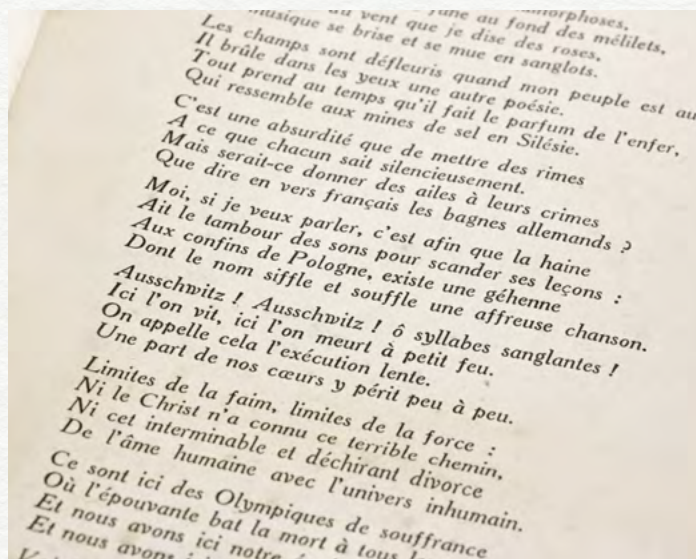 morphoses,
vent que je dise des roses,
musique se brise et se mue en sanglots.
au fond des mélilets,
Les champs sont défleuris quand mon peuple est au
Il brûle dans les yeux une autre poésie.
Tout prend au temps qu'il fait le parfum de l'enfer,
Qui ressemble aux mines de sel en Silésie.
C'est une absurdité que de mettre des rimes
A ce que chacun sait silencieusement.
Mais serait-ce donner des ailes à leurs crimes
Que dire en vers français les bagnes allemands ?
Moi, si je veux parler, c'est afin que la haine
Ait le tambour des sons pour scander ses leçons :
Aux confins de Pologne, existe une géhenne
Dont le nom siffle et souffle une affreuse chanson.
Ausschwitz ! Ausschwitz ! ô syllabes sanglantes !
Ici l'on vit, ici l'on meurt à petit feu.
On appelle cela l'exécution lente.
Une part de nos cœurs y périt peu à peu.
Limites de la faim, limites de la force :
Ni le Christ n'a connu ce terrible chemin,
Ni cet interminable et déchirant divorce
De l'âme humaine avec l'univers inhumain.
Ce sont ici des Olympiques de souffrance
Où l'épouvante bat la mort à tous
Et nous avons ici notre
Et nous avons ici